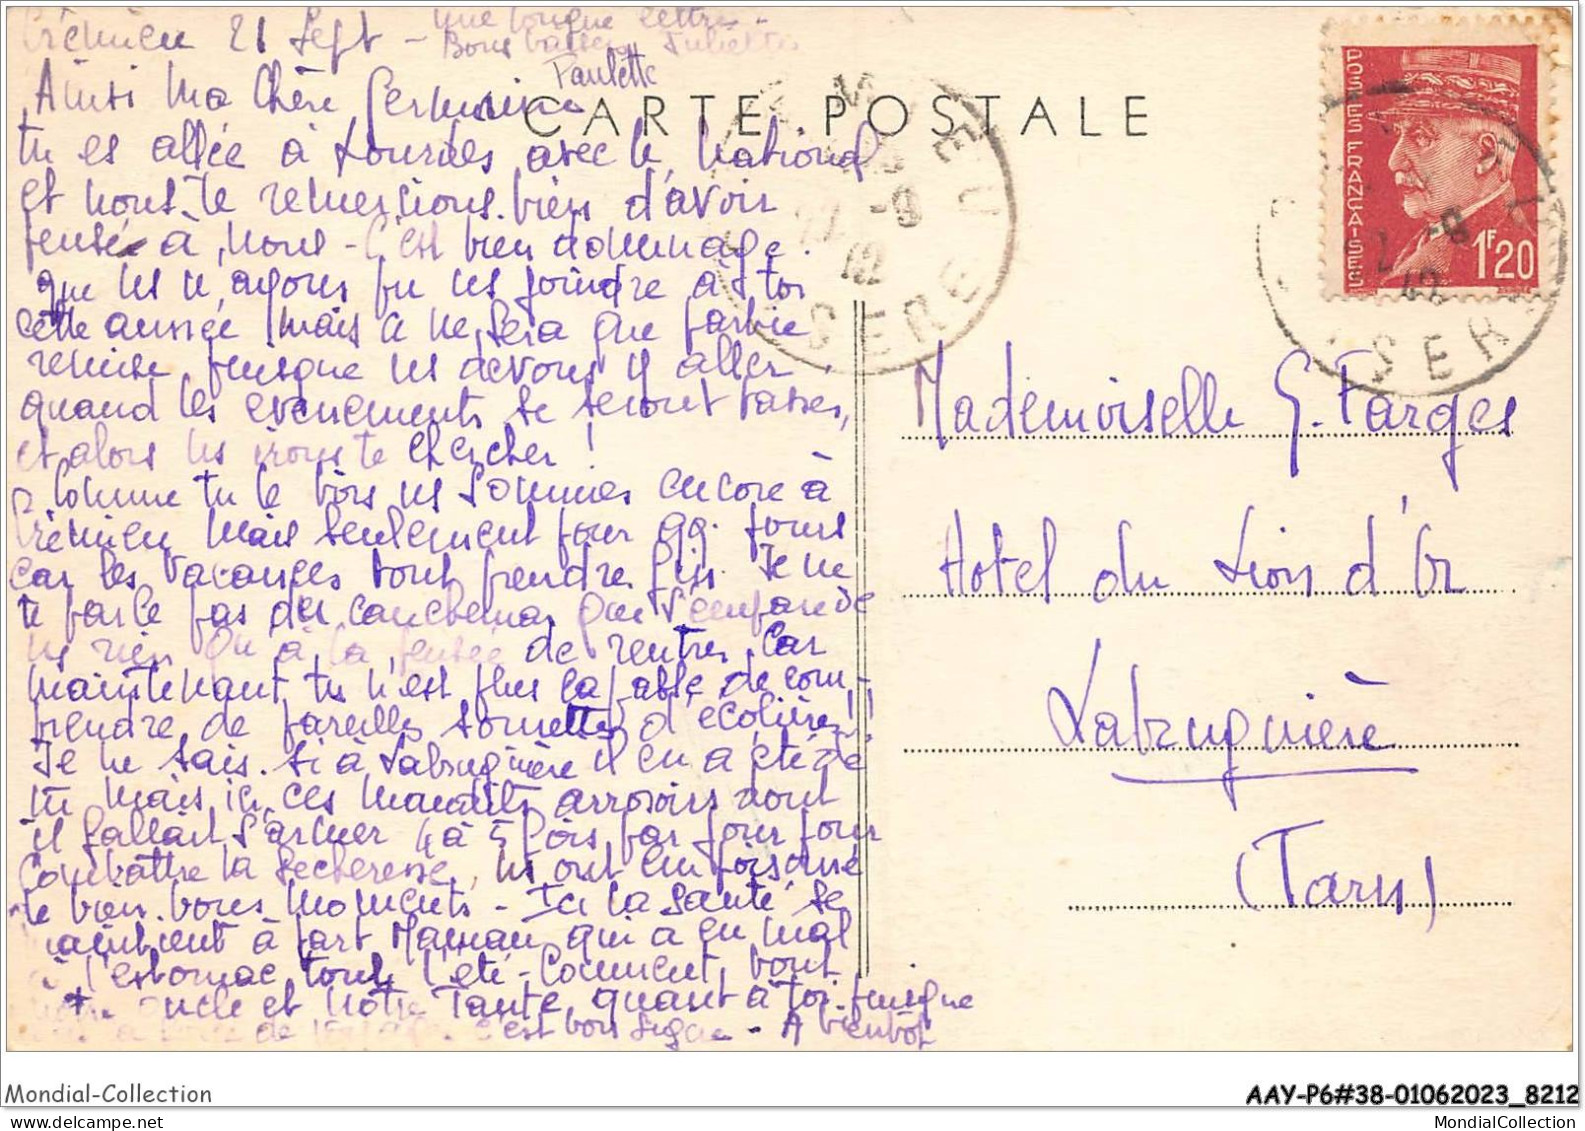 Crémieu 21 Sept - une longue lettre -
Bons baisers Juliette
Paulette
Ainsi Ma Chère Germaine
tu es allée à Lourdes avec le National
et nous te remercions bien d'avoir
pensé à nous - C'est bien dommage
que ns n'ayons pu ns joindre à toi
cette année mais ce ne sera que partie
remise puisque ns devons y aller
quand les evenements se seront passés,
et alors ns irons te chercher !
Comme tu le vois ns sommes encore à
Crémieu mais seulement pour qq. jours
car les vacances vont prendre fin. Je ne
te parle pas du cauchemar qui s'empare de
ns rien qu'à la pensée de rentrer, car
maintenant tu n'est plus capable de com-
prendre de pareilles sornettes d'écolières !
Je ne sais si à Labruguière il en a été de
m mais ici ces maudits arrosoirs dont
il fallait s'armer 4 à 5 fois par jour pour
combattre la secheresse, ns ont empoisonné
de bien bons moments - Ici la santé se
maintient à part Maman qui a eu mal
à l'estomac tout l'été - Comment vont
ton oncle et notre Tante, quant à toi puisque
c'est bon signe - A bientôt
CARTE POSTALE
POSTES FRANÇAISES
1F20
CREMIEU
ISERE
-9
42
Mademoiselle G. Farges
Hotel du Lion d'Or
Labruguière
(Tarn)
Mondial-Collection
AAY-P6#38-01062023_8212
MondialCollection